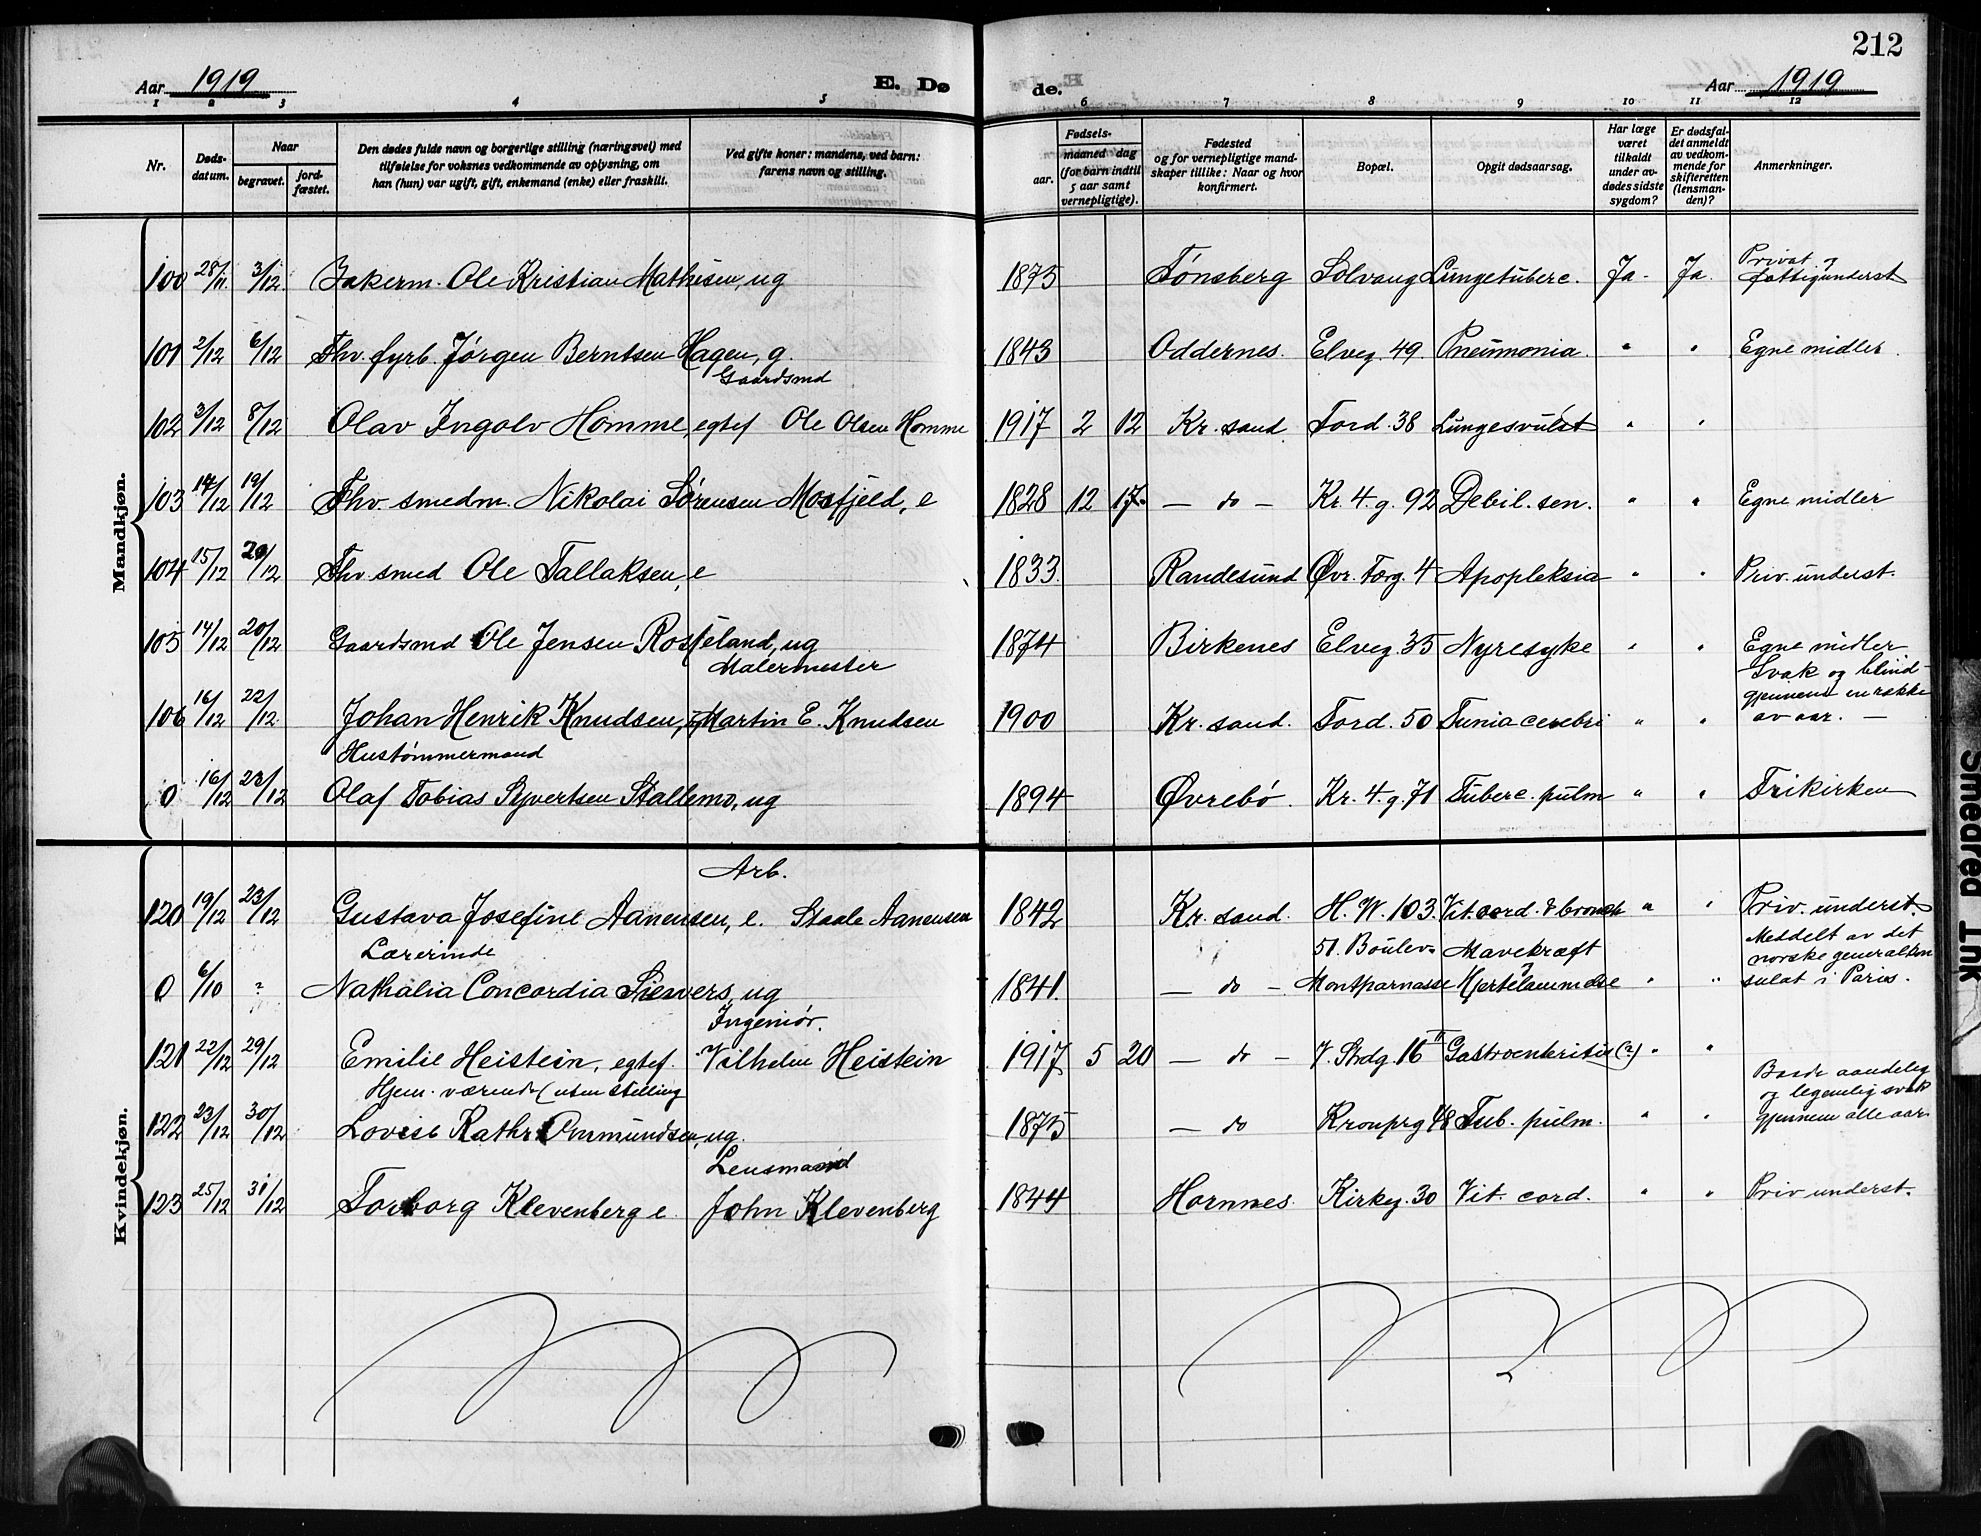 212
Aar 1919 E. Dø de. Aar 1919
1 2 3 4 5 6 7 8 9 10 11 12
Nr.
Døds-
datum.
Naar
begravet.
jord-
fæstet.
Den dødes fulde navn og borgerlige stilling (næringsvei) med
tilføielse for voksnes vedkommende av oplysning, om
han (hun) var ugift, gift, enkemand (enke) eller fraskilt.
Ved gifte koner: mandens, ved barn:
farens navn og stilling.
Fødsels-
aar.
maaned dag
(for barn indtil
5 aar samt
vernepligtige).
Fødested
og for vernepligtige mand-
skaper tillike: Naar og hvor
konfirmert.
Bopæl.
Opgit dødsaarsag.
Har læge
været
tilkaldt
under av-
dødes sidste
sygdom?
Er dødsfal-
det anmeldt
av vedkom-
mende for
skifteretten
(lensman-
den)?
Anmerkninger.
Mandkjøn.
Privat og
100 28/11. 3/12. Ole Kristian Mathisen, ug 1875 Tønsberg Solvang Lungetuberc. Ja - Ja. fattigunderst
101 2/12 6/12 Fhv. fyrb. Jørgen Berntsen Hagen, g. 1843 Oddernes. Elveg. 49 Pneumonia. " " Egne midler.
Gaardsmd
102 3/12 8/12 Olav Ingolv Homme, egtef Ole Olsen Homme 1917 2 12 Kr. sand. Tord. 38 Lungesvulst " "
103 14/12 19/12 Fhv. smedm. Nikolai Sørensen Mosfjeld, e 1828 12 17 - do - Kr. 4. g. 92 Debil. sen. " " Egne midler
104 15/12 20/12 Fhv. smed Ole Tallaksen, e 1833. Randesund Øvr. Torg. 4 Apopleksia " " Priv. underst.
105 14/12 20/12 Gaardsmd Ole Jensen Rosseland, ug 1874 Birkenes Elveg. 35 Nyresyke " " Egne midler
Malermester
Svak og blind
gjennem en række
106 16/12 22/12 Johan Henrik Knudsen, Martin E. Knudsen 1900 Kr. sand. Tord. 50 cerebri " " av aar. —
Hustømmermand
0 16/12 23/12 Olaf Tobias Syvertsen Stallemo, ug 1894 Øvrebø. Kr. 4. g. 71 Tuberc. pulm " " Frikirken
Kvindekjøn.
Arb.
120 19/12 23/12 Gustava Josefine Aanensen, e. Staale Aanensen 1842 Kr. sand. H. W. 103. Vit. cord. & bronch " " Priv. underst.
Lærerinde
51. Boulev. Mavekræft
Meddelt av det
norske generalkon
0 6/10 ? Nathalia Concordia Siewers, ug 1841. - do - Montparnasse Hjertelammelse " " sulat i Paris.
Ingeniør.
121 22/12 29/12 Emilie Heistein, egtef. Vilhelm Heistein 1917 5 20 - do - V. Strdg. 16 II Gastroenteritis (?) " "
Hjem. værende (uten stilling
Baade aandelig
og legemlig svak
gjennem alle aar.
122 23/12 30/12 Lovise Kathr. Omundsen, ug. 1875 - do Kronprg 48 Tub. pulm. " "
Lensmand
123 25/12 31/12 Torborg Klevenberg e. John Klevenberg 1844 Hornnes. Kirkeg. 30 Vit. cord. " " Priv underst.
Smeared Ink